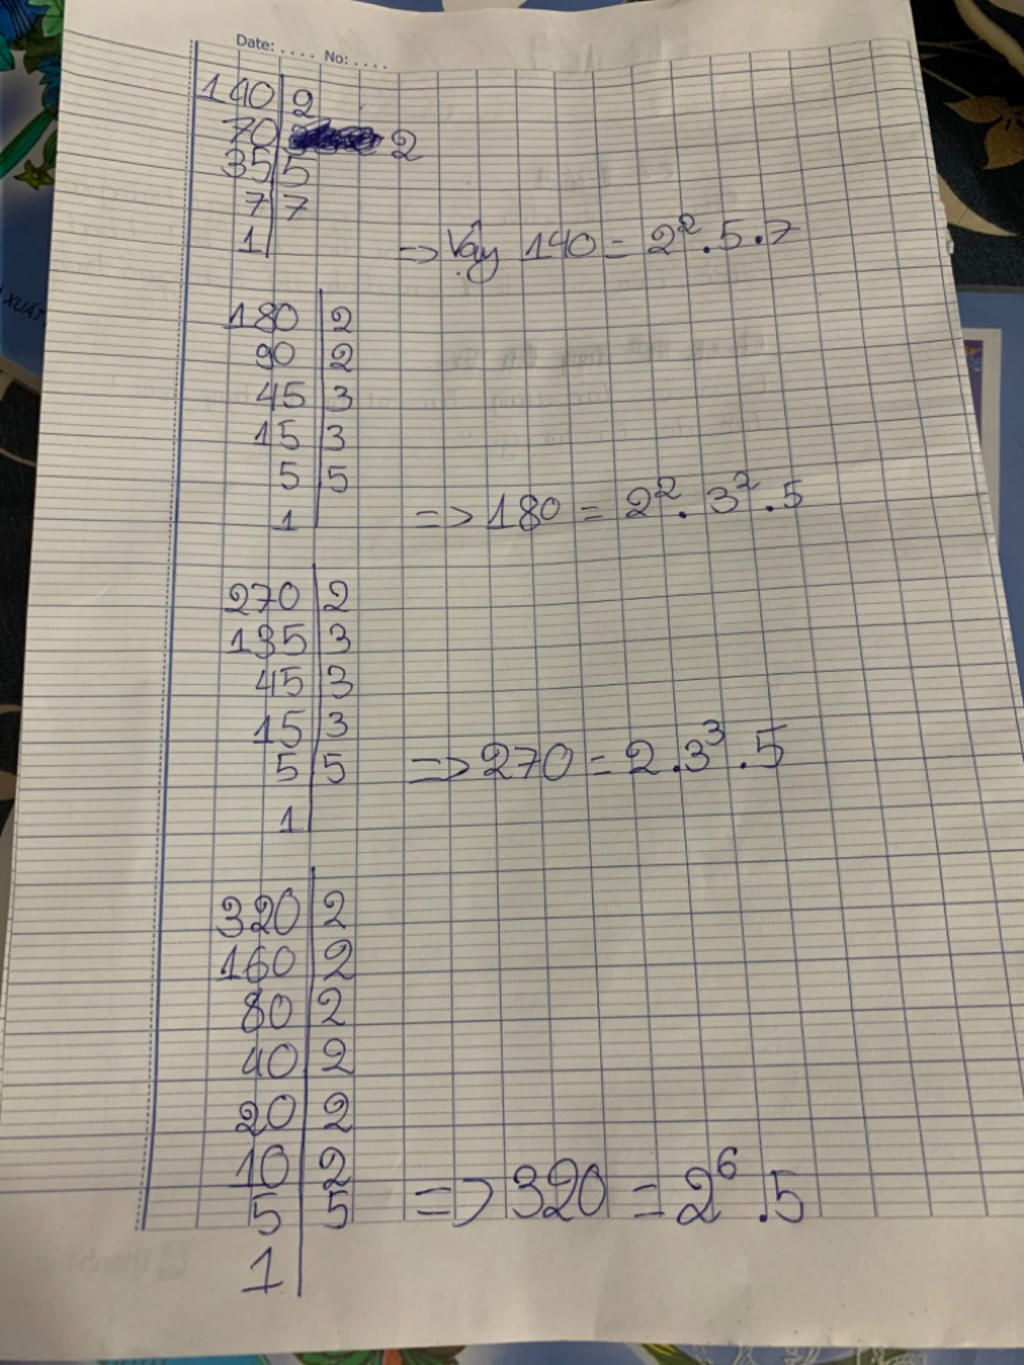 Date: .... No: ....
140 | 2
70 | 2
35 | 5
7 | 7
1 | => Vậy 140 = 2². 5. 7
180 | 2
90 | 2
45 | 3
15 | 3
5 | 5
1 | => 180 = 2². 3². 5
270 | 2
135 | 3
45 | 3
15 | 3
5 | 5 => 270 = 2. 3³. 5
1 |
320 | 2
160 | 2
80 | 2
40 | 2
20 | 2
10 | 2
5 | 5 => 320 = 2⁶. 5
1 |
XUẤT